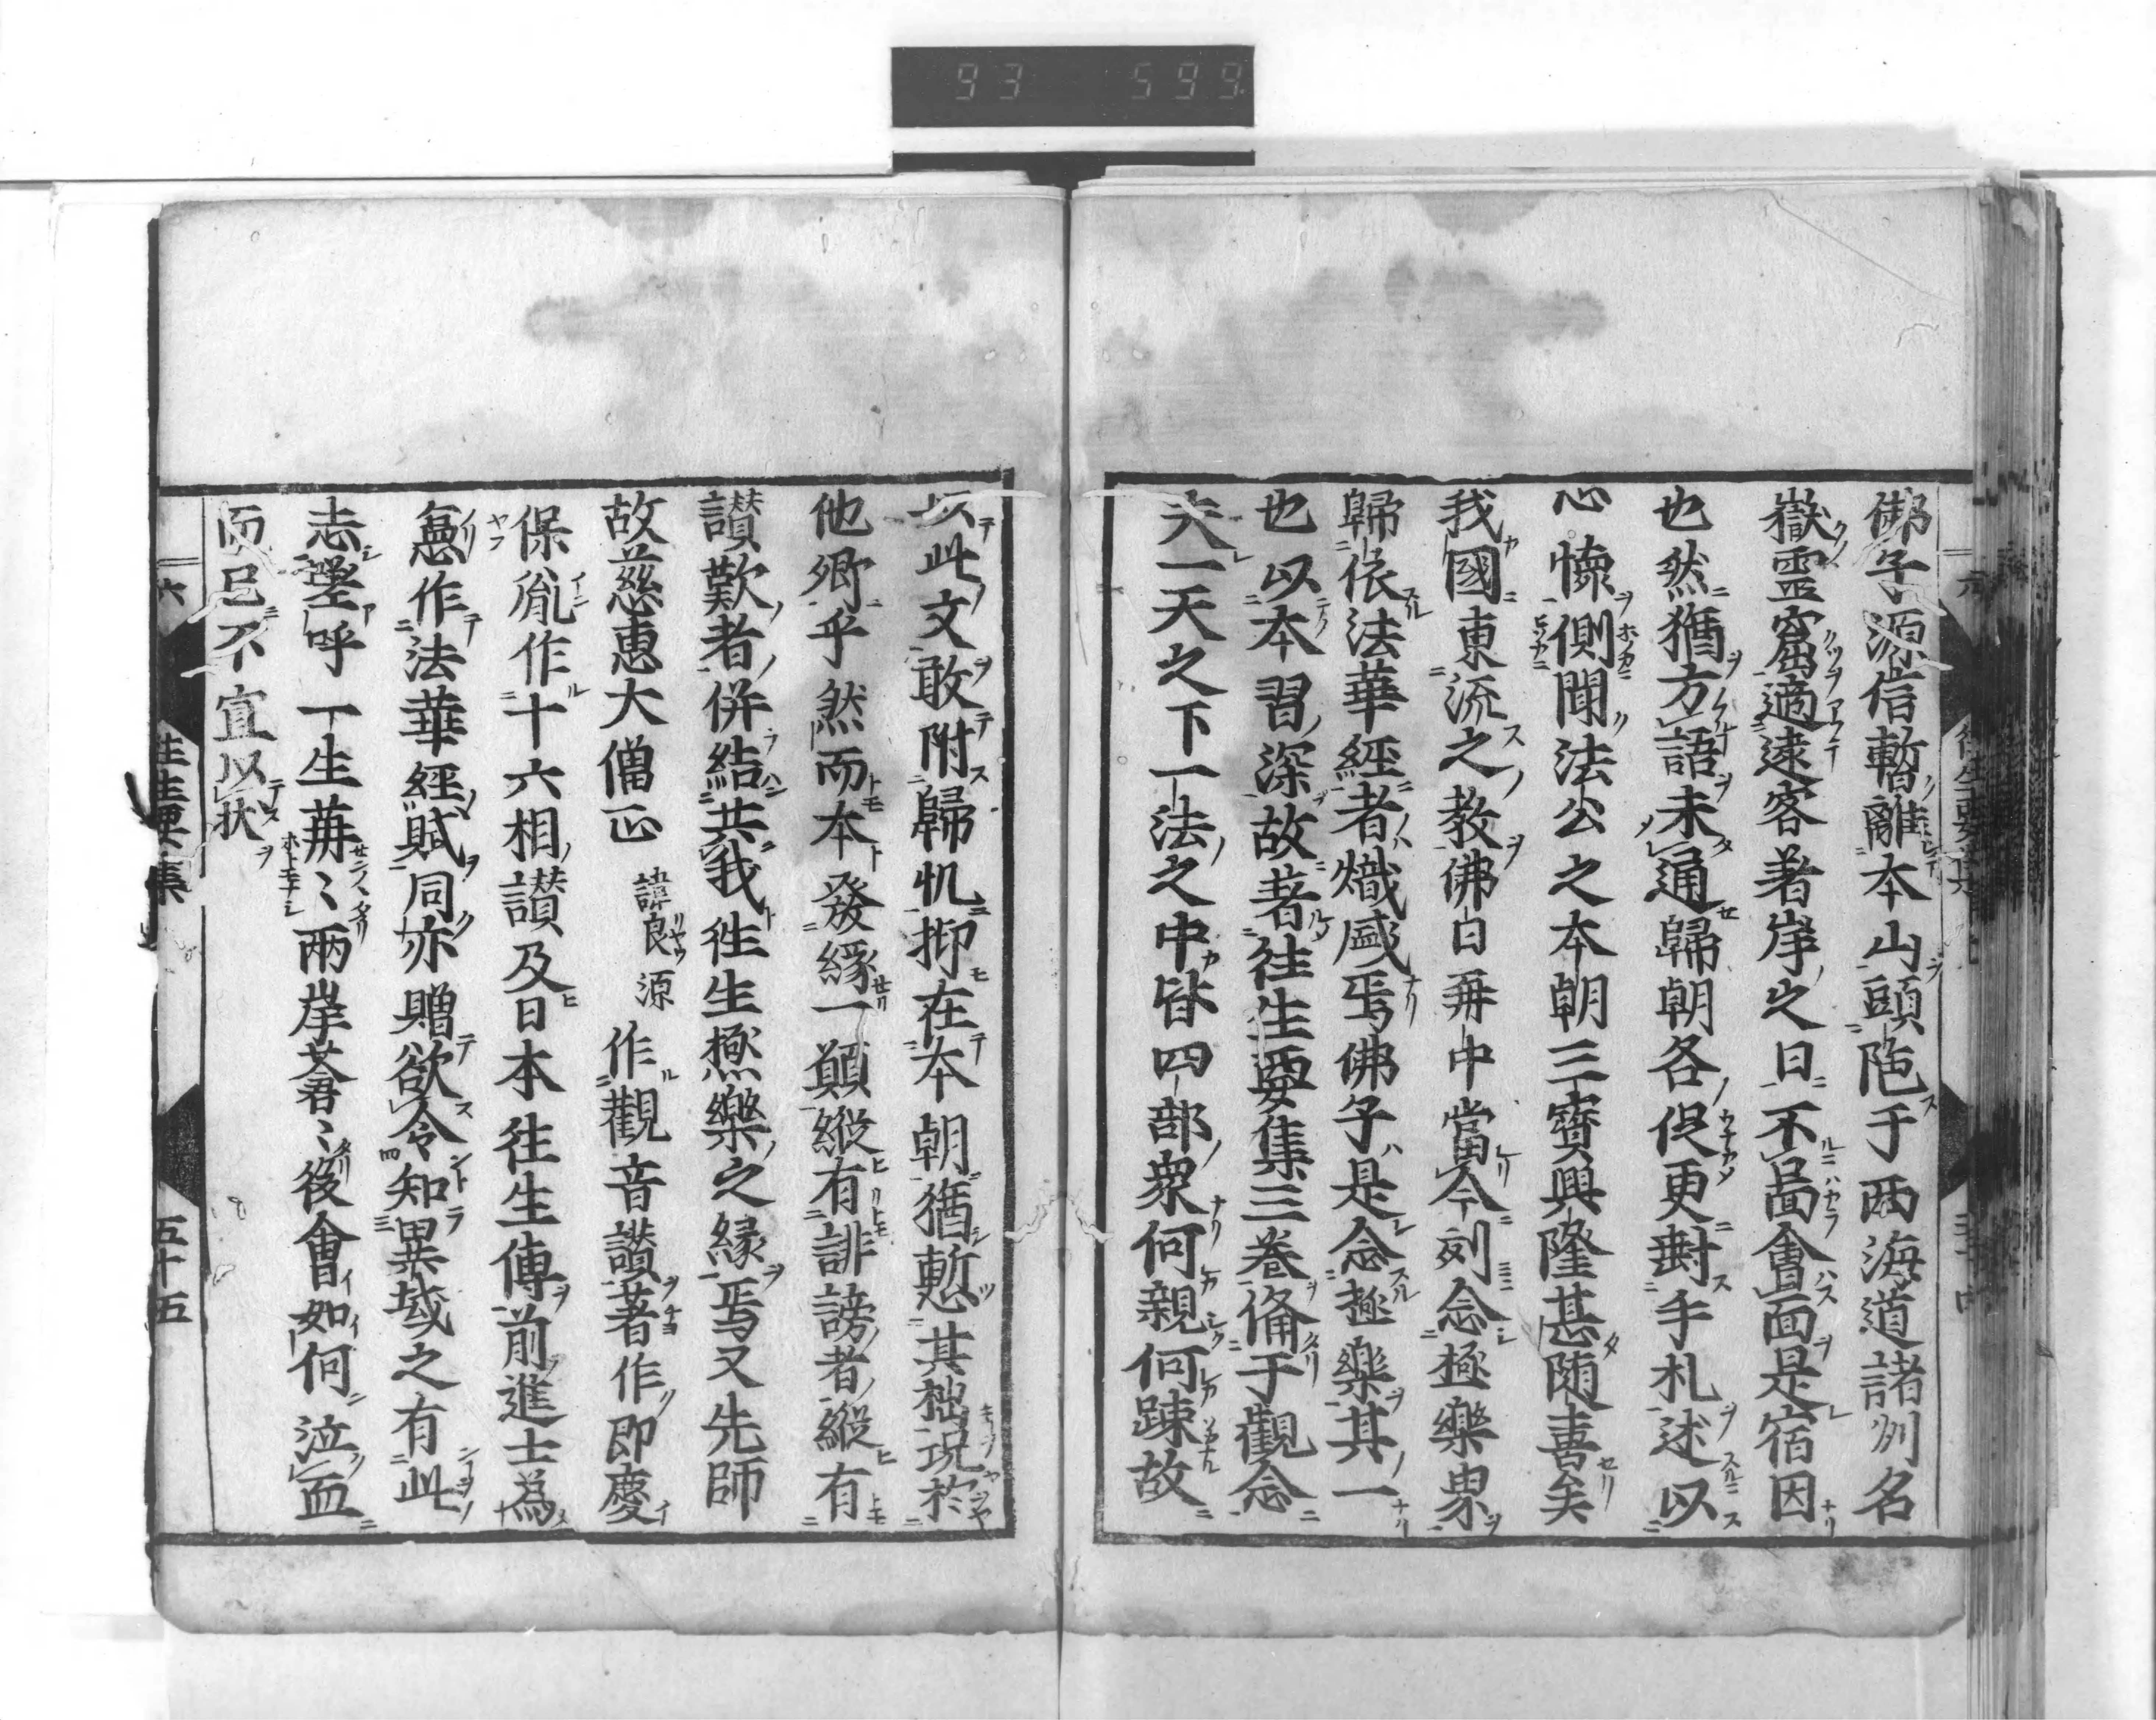 佛子源信暫離本山頭陁于西海道諸列名
嶽霊窟適遠客著岸之日不啚會面是宿因
也然猶方語未通歸朝各促更封手札述以
心懐側聞法公之本朝三寶興隆甚随喜矣
我國東流之教佛日再中當今刻念極樂界
歸依法華經者熾盛焉佛子是念極樂其一
也以本習深故著往生要集三巻俻于觀念
夫一天之下一法之中皆四部衆何親何踈故
以此文敢附歸帆抑在本朝猶慙其拙况於
他郷乎然而本發緣一願縱有誹謗者縱有
讃歎者併結共我徃生極樂之縁焉又先師
故慈惠大僧正諱良源作觀音讃著作郎慶
保胤作十六相讃及日本往生傳前進士為
憲作法華經賦同亦贈欲令知異域之有此
志嗟呼一生苒〻兩岸蒼〻後會如何泣血
而已不宣以状
六
往生要集
五十五
93 599